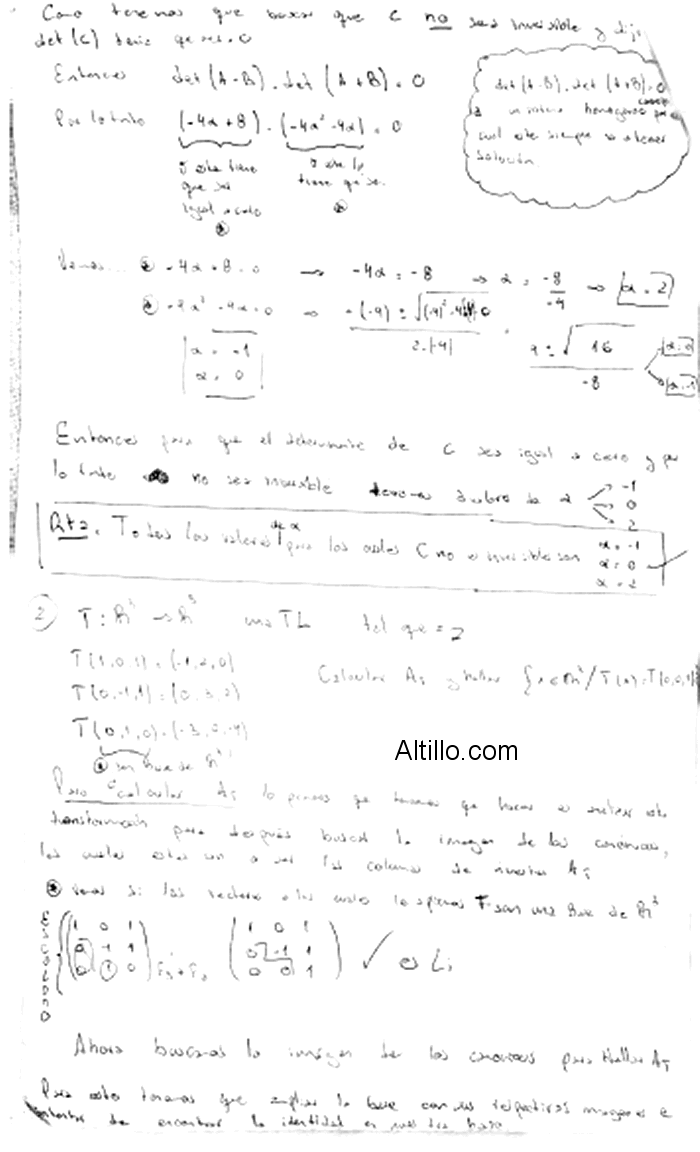 Como tenemos que buscar que C no sea invertible y dij
det (C) tenia que ser = 0
Entonces det (A-B) . det (A+B) = 0
det (A-B) . det (A+B) = 0
Por lo tanto (-4α+8) . (-4α² -4α) = 0
homogeneo
cual este siempre va a tener
solución
ó este tiene que ser igual a cero
ó este lo tiene que ser.
Veamos... -4α+8=0 → -4α = -8 → α = -8/-4 → α = 2
-4α² -4α=0 → -(-4) ± √(-4)² -4 . 0 / 2.(-4) = 4 ± √16 / -8
α = 0
α = -1
α = -1
α = 0
Entonces para que el determinante de C sea igual a cero y por
lo tanto no sea invertible tenemos α -1
0
2
Rta. Todos los valores de α para los cuales C no es invertible son α = -1
α = 0
α = 2
2) T: R³ → R³ una TL tal que =
T(1,0,1) = (-1,2,0)
T(0,-1,1) = (0,3,2)
T(0,1,0) = (-3,0,-4)
Calcular A_T y hallar { x ∈ R³ / T(x) = T(0,0,1)
son base de R³
Altillo.com
Para calcular A_T lo primero que tenemos que hacer es analizar esta
transformación para después buscar la imagen de los canónicos,
los cuales estos van a ser las columnas de nuestra A_T
veamos si los vectores a los cuales le aplicamos T son una base de R³
Escalono
( 1 0 1
0 -1 1
0 1 0 ) F₃+F₂
( 1 0 1
0 -1 1
0 0 1 ) ✓ es Li
Ahora buscamos la imagen de los canónicos para hallar A_T
Para esto tenemos que ampliar la base con sus respectivas imagenes e
intentar de encontrar la identidad en nuestra base